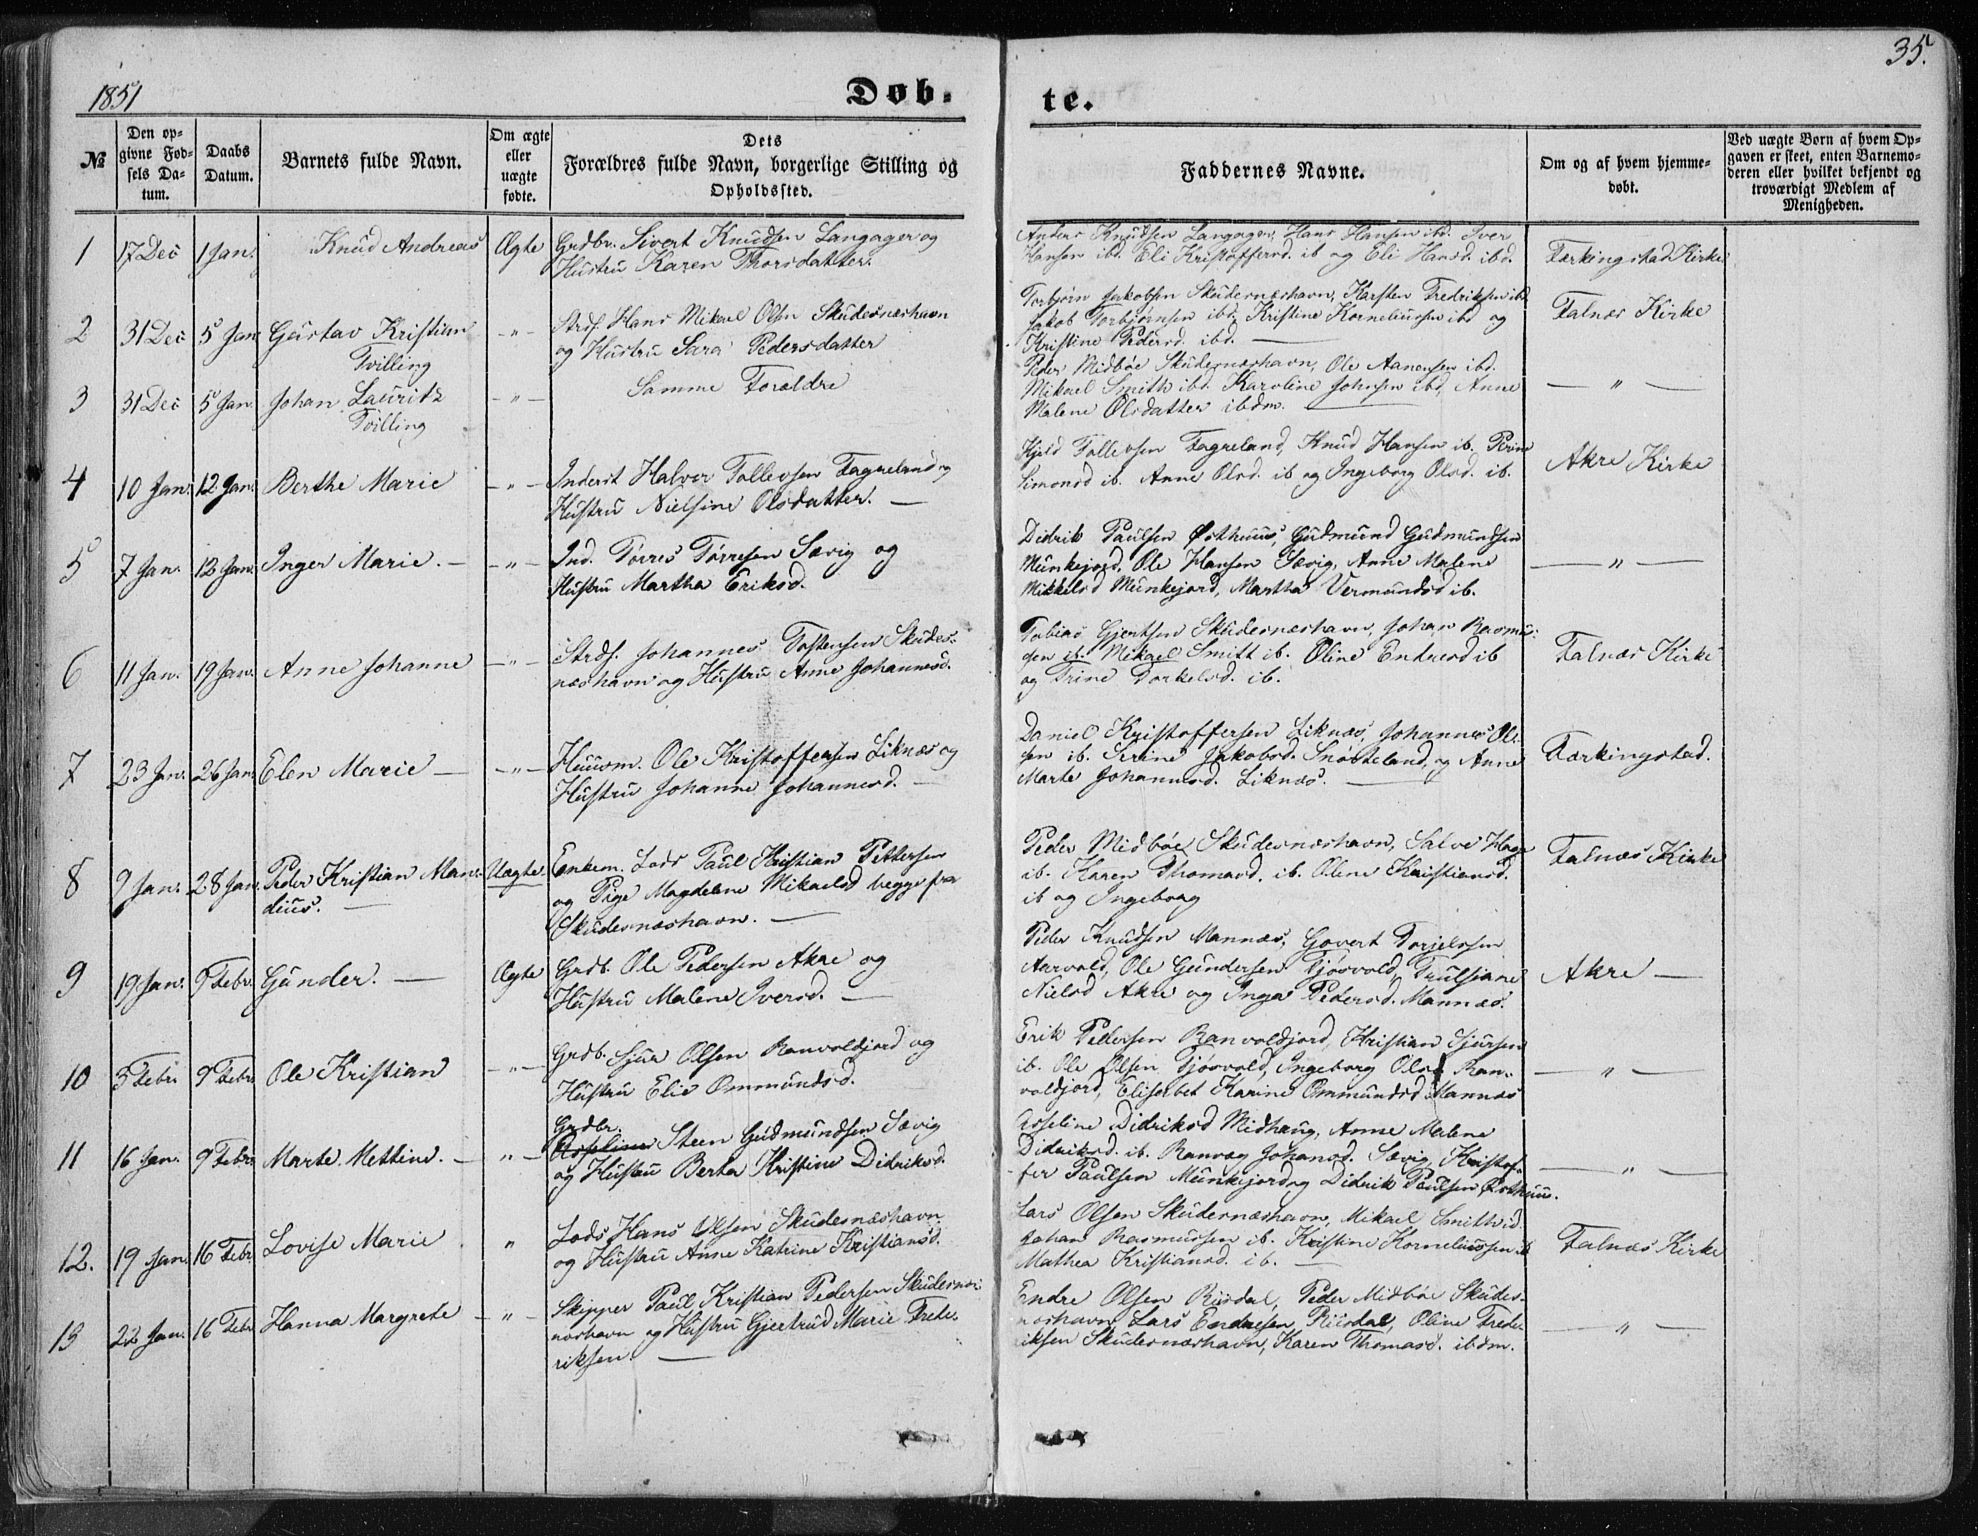 1851
Døb-
te.
35.
№
Den op-
givne Fød-
sels Da-
tum.
Daabs
Datum.
Barnets fulde Navn.
Om ægte
eller
uægte
fødte.
Dets
Forældres fulde Navn, borgerlige Stilling og
Opholdssted.
Faddernes Navne.
Om og af hvem hjemme-
døbt.
Ved uægte Børn af hvem Op-
gaven er skeet, enten Barnemo-
deren eller hvilket bekjendt og
troværdigt Medlem af
Menigheden.
1 17 Dec 1 Jan. Knud Andreas Ægte Grdbr. Sivert Knudsen Langager og
Hustru Karen Thorsdatter.
Anders Knudsen Langager, Hans Hansen ibd. Iver
Hansen ibd. Eli Kristoffersd. ib og Eli Hansd. ibd.
Færkingstad Kirke
2 31 Dec 5 Jan Gustav Kristian
Tvilling
-"- Strds. Hans Mikael Olsen Skudesnæshavn
og Hustru Sara Pedersdatter
Torbjørn Jakobsen Skudesnæshavn, Karsten Fredriksen ibd
Jakob Torbjørnsen ibd, Kristine Korneliussen ibd og
Kristine Pedersd. ibd.
Falnæs Kirke
3 31 Dec 5 Jan. Johan Lauritz
Tvilling
-"- Samme Forældre
Peder Midbøe Skudesnæshavn, Ole Aanensen ibd.
Mikael Smith ibd. Karoline Johnsen ibd, Anne
Malene Olsdatter ibdm.
— " —
4 10 Jan. 12 Jan. Berthe Marie -"- Inderst Halvor Tollevsen Fagreland og
Hustru Nielsine Olsdatter. —
Kjeld Tollevsen Fagreland, Knud Hansen ib. Perine
Simonsd ib. Anne Olsd. ib og Ingeborg Olsd. ib.
Akre Kirke
5 7 Jan. 12 Jan. Inger Marie. — -"- Ind. Tørres Tørresen Sævig og
Hustru Martha Eriksd.
Didrik Paulsen Østhuus, Gudmund Gudmundsen
Munkejord, Ole Hansen Sævig, Anne Malene
Mikkelsd Munkejord, Martha Vermundsd ib.
— " —
6 11 Jan. 19 Jan. Anne Johanne -"- Strds. Johannes Tostensen Skudes-
næshavn og Hustru Anne Johannesd.
Tobias Gjertsen Skudesnæshavn, Johan Rasmus-
sen ib. Mikael Smitt ib. Oline Endresd ib
og Trine Torkelsd. ib.
Falnæs Kirke
7 23 Jan. 26 Jan. Elen Marie — -"- Huusm. Ole Kristoffersen Liknæs og
Hustru Johanne Johannesd. —
Daniel Kristoffersen Liknæs, Johannes Ol-
sen ib. Serine Jakobsd. Snørteland, og Anne
Marte Johannesd. Liknæs. —
Færkingstad.
8 9 Jan. 28 Jan. Peder Kristian Man-
dius. —
Uægte Enkem. Lods Paul Kristian Pettersen
og Pige Magdelene Mikaelsd begge fra
Skudesnæshavn. —
Peder Midbøe Skudesnæshavn, Salve
ib. Karen Thomasd. ib. Olene Kristiansd.
ib og Ingeborg
Falnæs Kirke
9 19 Jan. 9 Febr. Gunder. — Ægte Grdb. Ole Pedersen Akre og
Hustru Malene Iversd. —
Peder Knudsen Mannæs, Govert Torjelssen
Aarvold, Ole Gundersen Tjøsvold, Trulsiane
Nielsd Akre og Inga Pedersd. Mannæs.
Akre —
10 5 Febr 9 Febr Ole Kristian -"- Grdb. Sjur Olsen Ranvoldjord og
Hustru Elie Ommundsd.
Erik Pedersen Ranvoldjord, Kristian Sjursen
ib. Ole Olsen Tjøsvold, Ingeborg Olsd Ran-
voldjord, Elisabet Karine Ommundsd Mannæs
— " —
11 16 Jan. 9 Febr Marte Mettine. — "- Grdbr.
Asseline Steen Gudmundsen Sævig
og Hustru Berta Kristine Didriksd.
Asseline Didriksd Midhaug, Anne Malene
Didriksd. ib. Ranvæg Johansd. Sævig, Kristof-
fer Paulsen Munkejord og Didrik Paulsen Østhuus.
— " —
12. 19 Jan. 16 Febr. Lovise Marie " Lods Hans Olsen Skudesnæshavn
og Hustru Anne Katrine Kristiansd.
Lars Olsen Skudesnæshavn, Mikael Smith id.
Johan Rasmussen ib. Kristine Korneliussen ib
Mathea Kristiansd. ib. —
Falnæs Kirke
13 22 Jan. 16 Febr Hanna Margrete -"- Skipper Paul Kristian Pedersen Skudesnæs-
næshavn og Hustru Gjertrud Marie Frede-
riksen. —
Endre Olsen Riisdal, Peder Midbøe Skudes-
næshavn, Lars Endresen Riisdal, Oline Frede
riksen Skudesnæshavn, Karen Thomasd. ibdm.
— " —